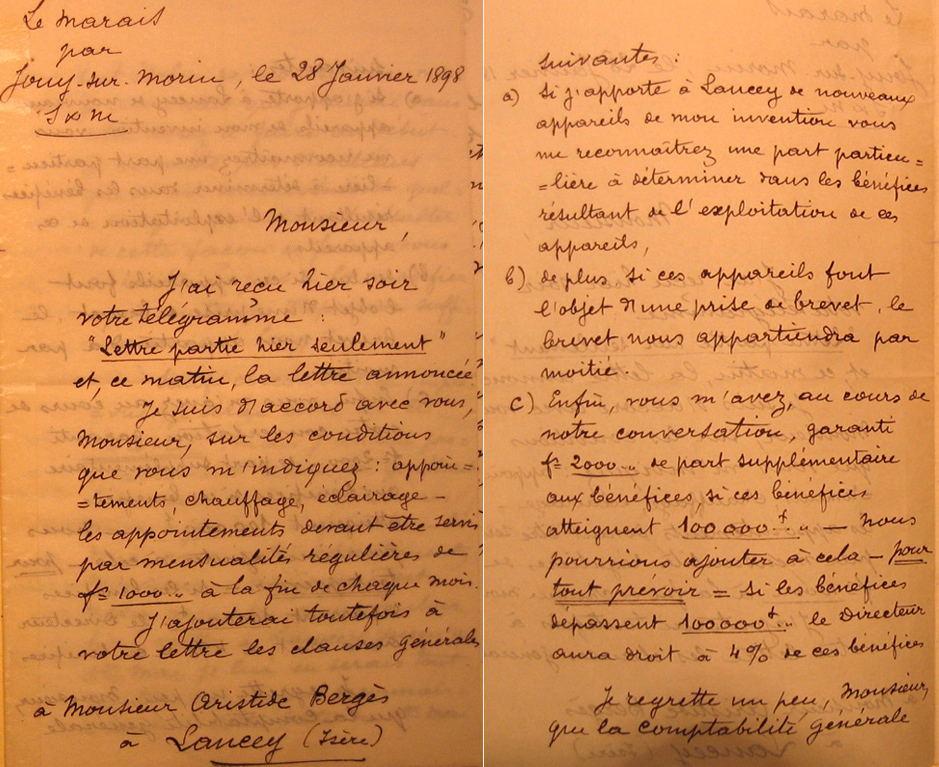 Le Marais
par
Jouy-sur-Morin, le 28 Janvier 1898
S&M
Monsieur,
J'ai reçu hier soir
votre télégramme :
"Lettre partie hier seulement"
et, ce matin, la lettre annoncée
Je suis d'accord avec vous,
Monsieur, sur les conditions
que vous m'indiquez : appoin=
=tements, chauffage, éclairage –
les appointements devant être servis
par mensualités régulières de
fs 1000.. à la fin de chaque mois.
J'ajouterai toutefois à
votre lettre les clauses générales
à Monsieur Aristide Bergès
à Lancey (Isère)
suivantes :
a) Si j'apporte à Lancey de nouveaux
appareils de mon invention vous
me reconnaîtrez une part particu=
=lière à déterminer dans les bénéfices
résultant de l'exploitation de ces
appareils,
b) de plus si ces appareils font
l'objet d'une prise de brevet, le
brevet nous appartiendra par
moitié.
c) Enfin, vous m'avez, au cours de
notre conversation, garanti
fs 2000.. de part supplémentaire
aux bénéfices, si ces bénéfices
atteignent 100000 f.. – Nous
pourrions ajouter à cela – pour
tout prévoir = Si les bénéfices
dépassent 100000 f.. le Directeur
aura droit à 4% de ces bénéfices
Je regrette un peu, Monsieur,
que la comptabilité générale